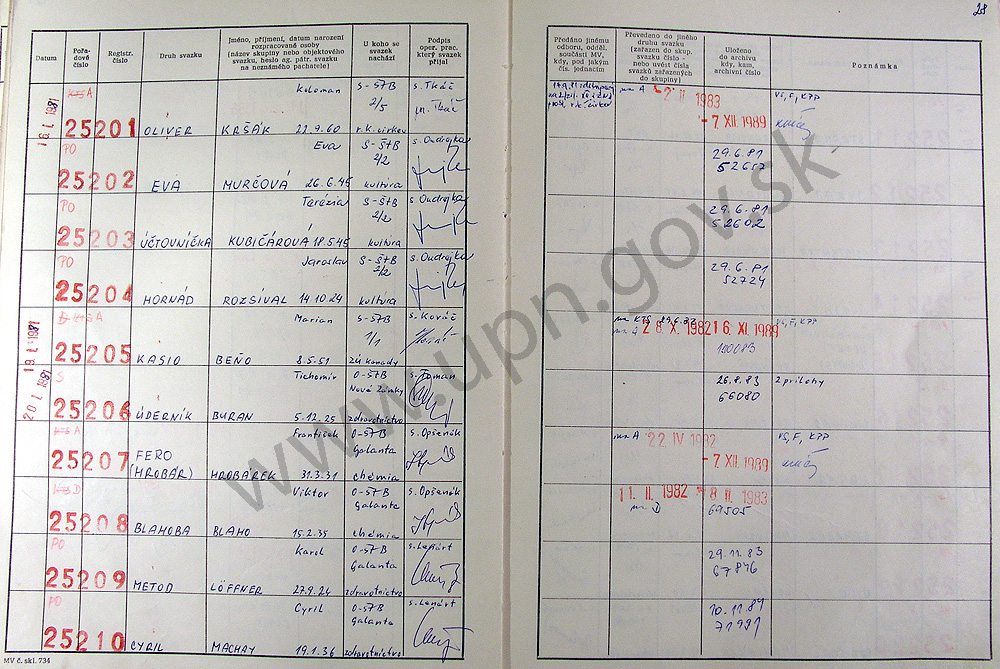 28
Datum
Pořadové číslo
Registr. číslo
Druh svazku
Jméno, příjmení, datum narození rozpracované osoby (název skupiny nebo objektového svazku, heslo ag. pátr. svazku na neznámého pachatele)
U koho se svazek nachází
Podpis oper. prac. který svazek přijal
Předáno jinému odboru, odděl. součásti MV, kdy, pod jakým čís. jednacím
Převedeno do jiného druhu svazku (zařazen do skup. svazku číslo - nebo uvést čísla svazků zařazených do skupiny)
Uloženo do archivu kdy, kam, archivní číslo
Poznámka
16. I. 1981
KTS A
25201
OLIVER
Koloman
KRŠÁK 22.9.60
S-ŠTB
2/5
r.k. cirkev
s. Tkáč
m. Tkáč
na A
2. II 1983
-7. XII. 1989
VS, F, KPP
PO
25202
EVA
Eva
MURČOVÁ 26.6.45
S-ŠTB
2/2
kultúra
s. Ondrejka
29.6.81
52657
PO
25203
ÚČTOVNÍČKA
Terézia
KUBIČÁROVÁ 18.5.45
S-ŠTB
2/2
kultúra
s. Ondrejka
29.6.81
52602
PO
25204
HORNÁD
Jaroslav
ROZSÍVAL 14.10.24
S-ŠTB
2/2
kultúra
s. Ondrejka
29.6.81
52724
19. I. 1981
KTS A
25205
KASIO
Marian
BEŇO 8.5.51
S-ŠTB
1/1
ZÚ Kanady
s. Kováč
na KTS
na A
28. X. 1982
16. XI. 1989
100083
VS, F, KPP
20. I. 1981
S
25206
ÚDERNÍK
Tichomír
BURAN 5.12.25
O-ŠTB
Nové Zámky
zdravotníctvo
26.8.83
66080
2 prílohy
KTS A
25207
FERO
(HROBÁR)
František
HROBÁREK 31.3.31
O-ŠTB
Galanta
chémia
s. Opšenák
na A
22. IV 1982
-7. XII. 1989
VS, F, KPP
KTS D
25208
BLAHOBA
Viktor
BLAHO 15.2.35
O-ŠTB
Galanta
chémia
s. Opšenák
11. II. 1982
na D
-8. II. 1983
69505
PO
25209
METOD
Karol
LÖFFNER 27.9.24
O-ŠTB
Galanta
zdravotníctvo
s. Lenárt
29.11.83
67846
PO
25210
CYRIL
Cyril
MACHAY 19.1.36
O-ŠTB
Galanta
zdravotníctvo
s. Lenárt
71991
MV č. skl. 734
www.upn.gov.sk